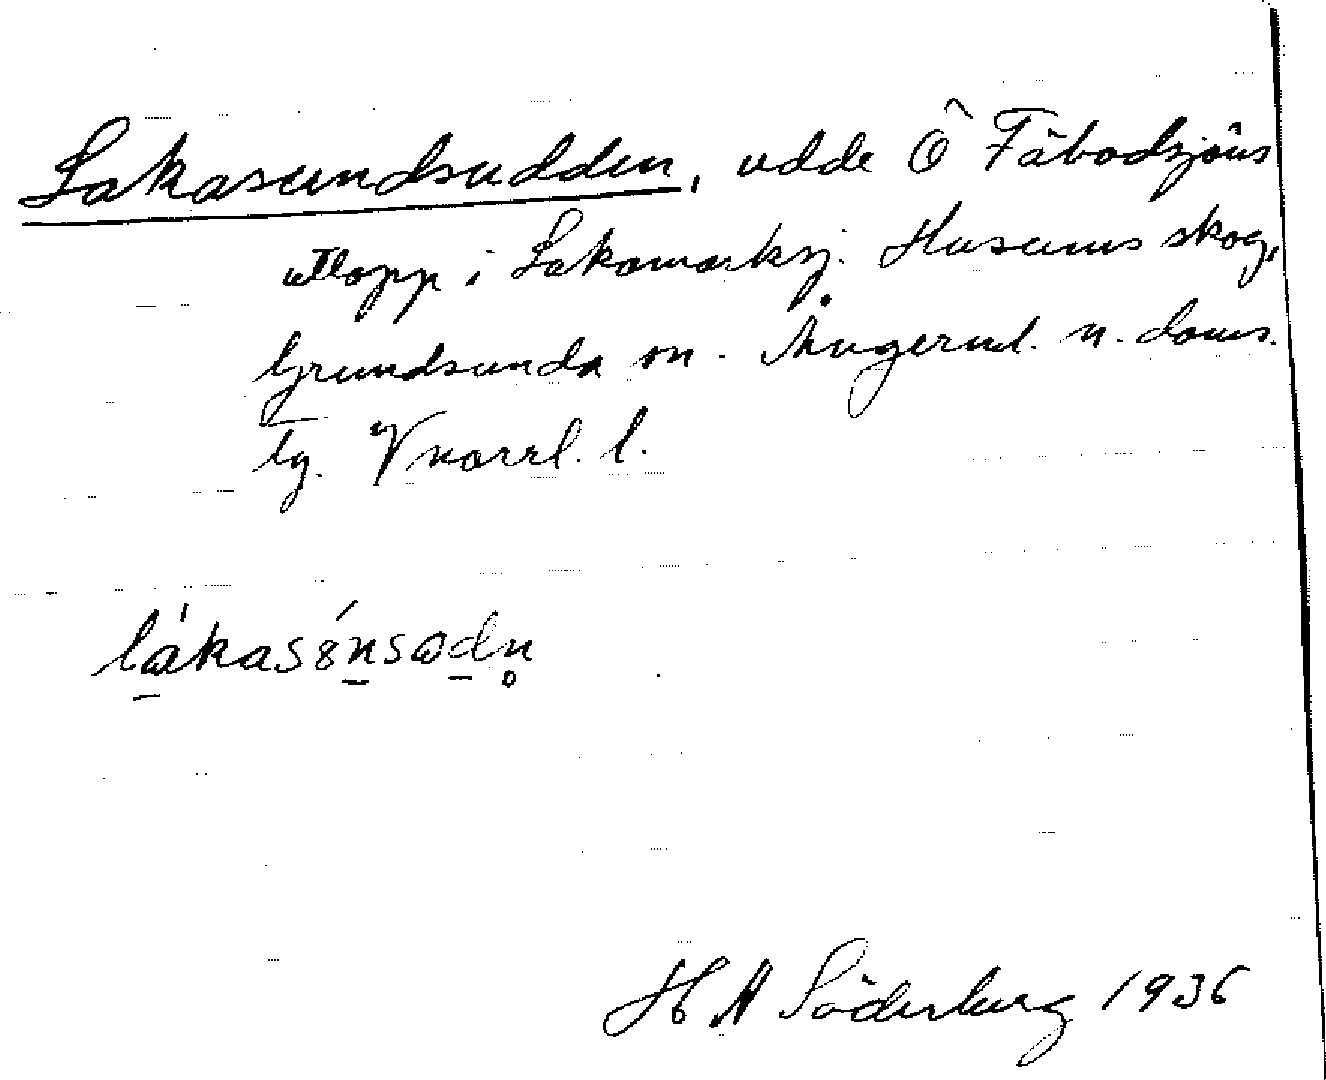 Lakasundsudden, udde Ö Fäbodsjöns
utlopp i Lakamarksj. Husums skog,
Grundsunda sn. Ångerml. n. doms.
lg. Vnorrl. l.
låkasónsodn
H A Söderberg 1936